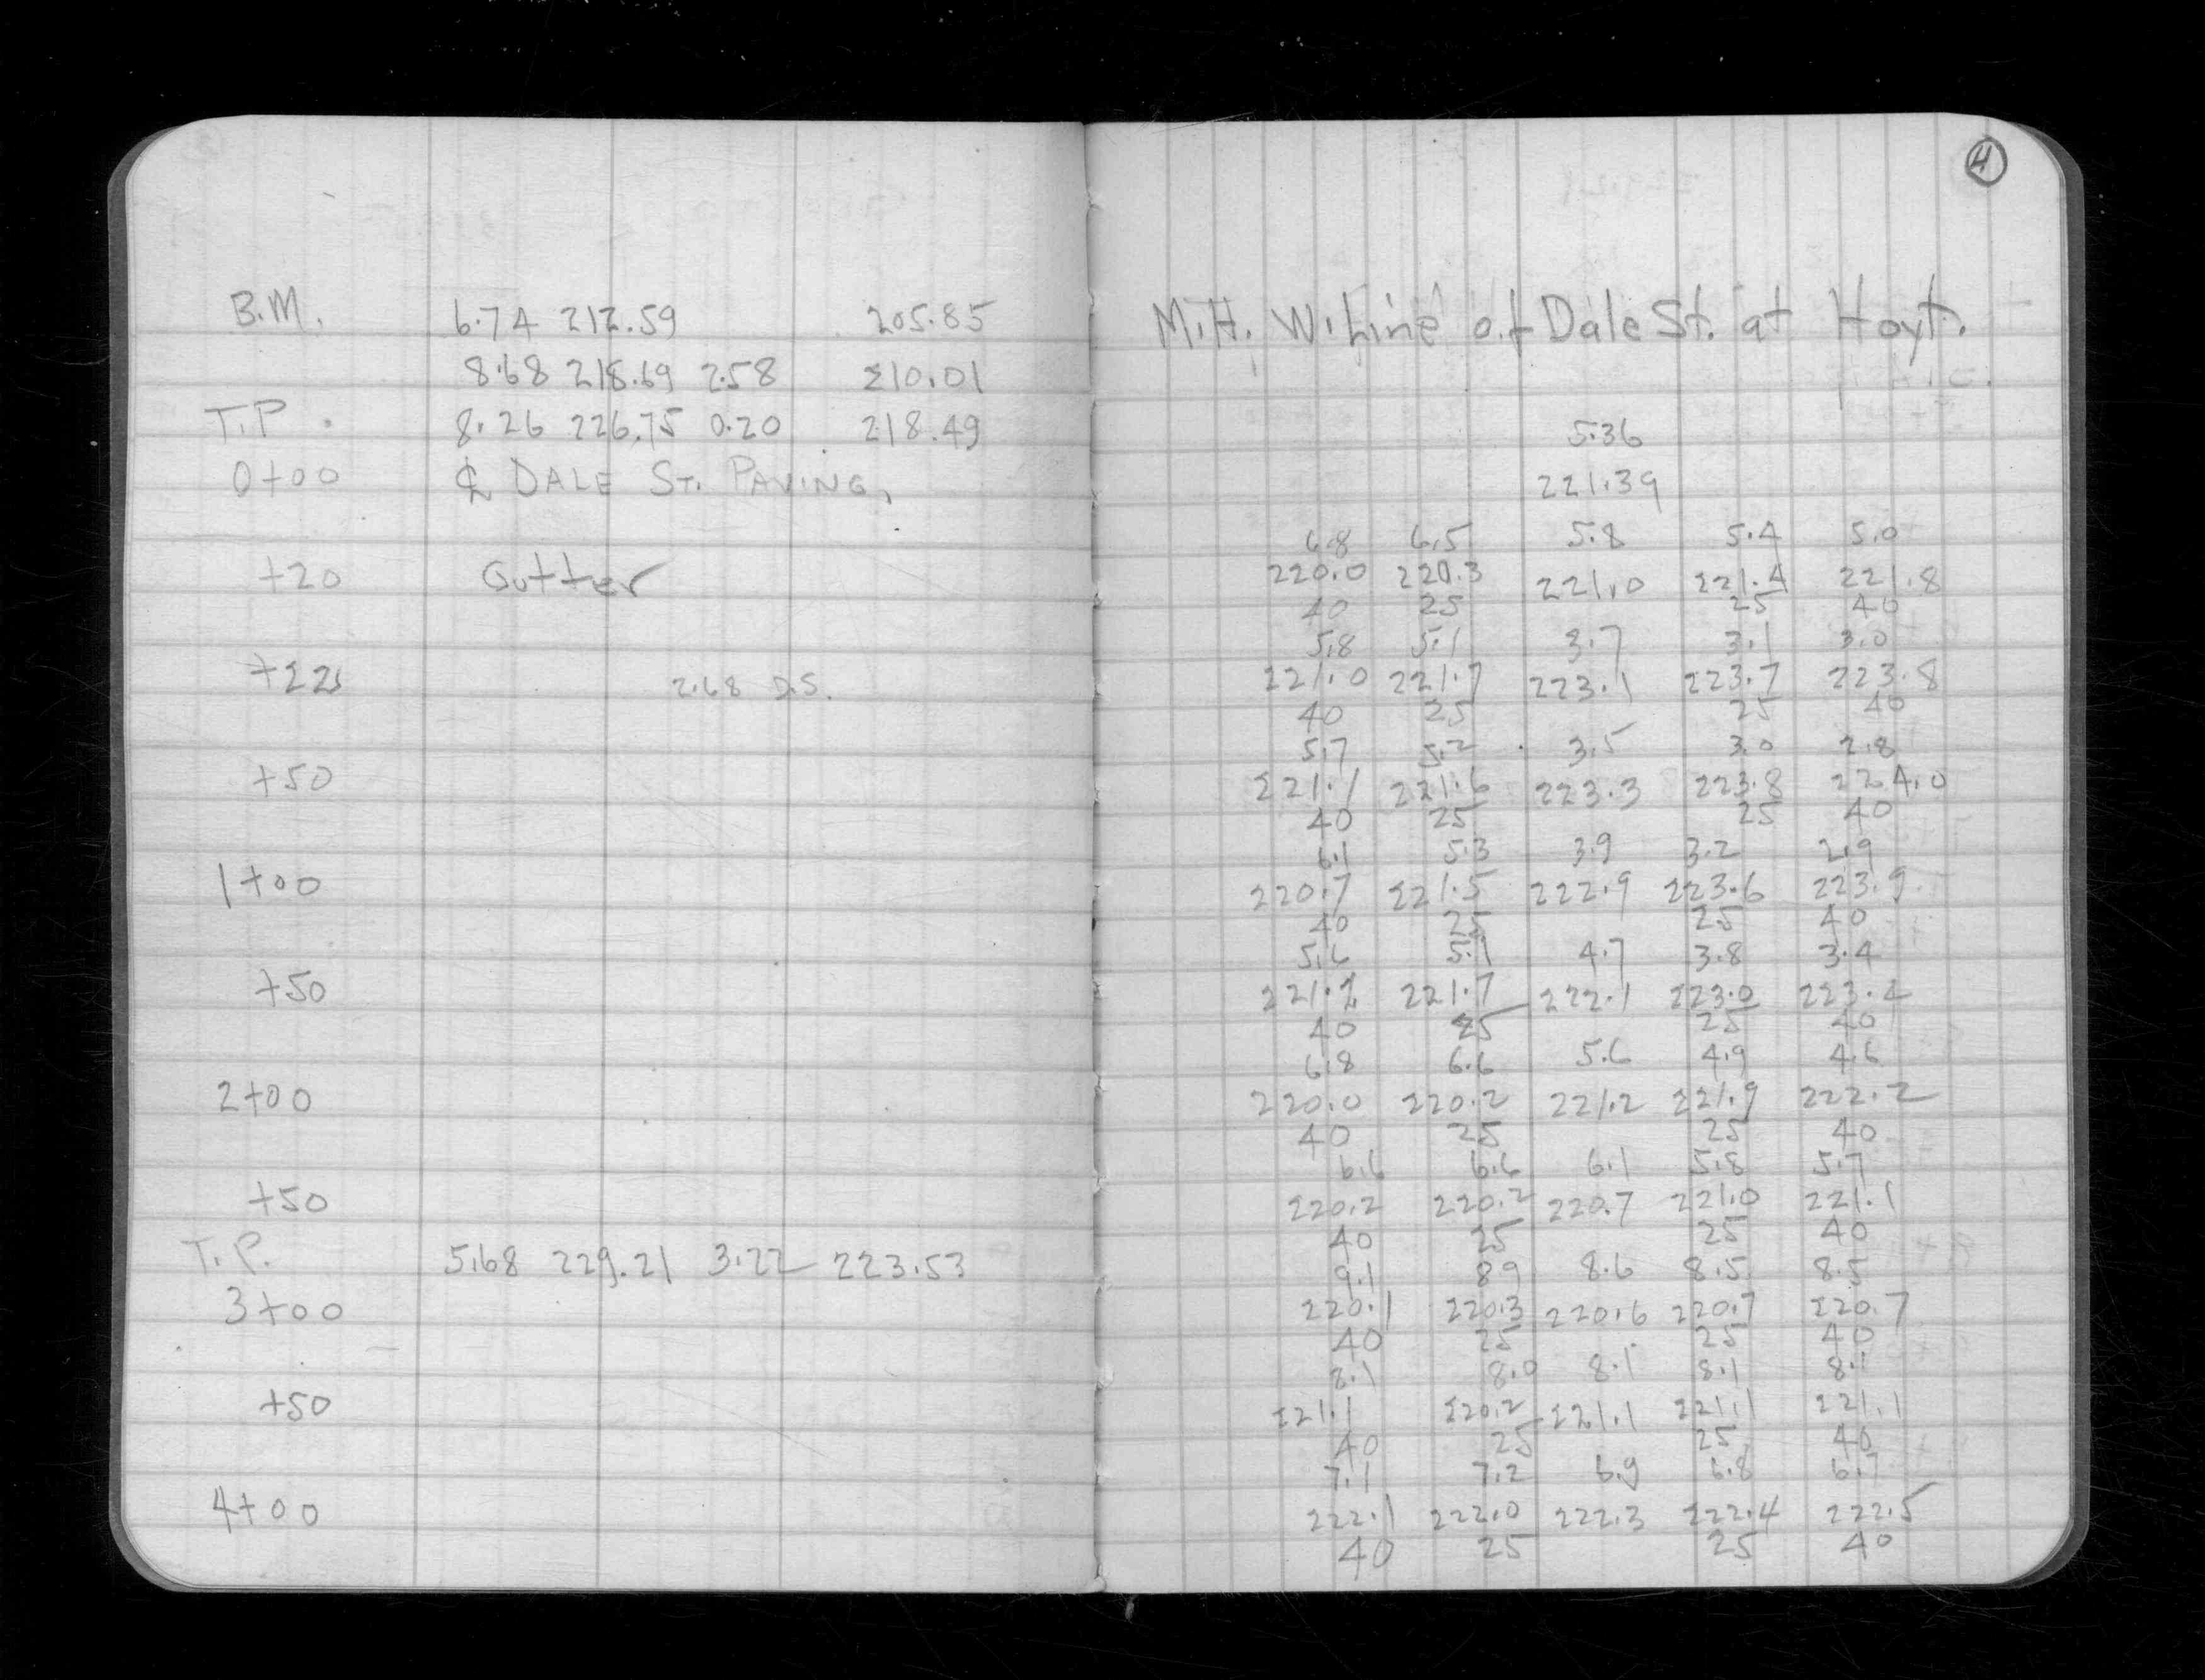 4
B.M. 6.74 212.59 205.85 M.H. W. Line of Dale St. at Hoyt.
8.68 218.69 2.58 210.01
T.P. 8.26 226.75 0.20 218.49 5.36
0+00 ℄ DALE ST. PAVING, 221.39
6.8 6.5 5.8 5.4 5.0
+20 Gutter 220.0 220.3 221.0 221.4 221.8
40 25 25 40
5.8 5.1 3.7 3.1 3.0
+22 2.68 D.S. 221.0 221.7 223.1 223.7 223.8
40 25 25 40
5.7 5.2 3.5 3.0 2.8
+50 221.1 221.6 223.3 223.8 224.0
40 25 25 40
6.1 5.3 3.9 3.2 2.9
1+00 220.7 221.5 222.9 223.6 223.9
40 25 25 40
5.6 5.1 4.7 3.8 3.4
+50 221.2 221.7 222.1 223.0 223.4
40 25 25 40
6.8 6.6 5.6 4.9 4.6
2+00 220.0 220.2 221.2 221.9 222.2
40 25 25 40
6.6 6.6 6.1 5.8 5.7
+50 220.2 220.2 220.7 221.0 221.1
40 25 25 40
T.P. 5.68 229.21 3.22 223.53 9.1 8.9 8.6 8.5 8.5
3+00 220.1 220.3 220.6 220.7 220.7
40 25 25 40
8.1 8.0 8.1 8.1 8.1
+50 221.1 220.2 221.1 221.1 221.1
40 25 25 40
7.1 7.2 6.9 6.8 6.7
4+00 222.1 222.0 222.3 222.4 222.5
40 25 25 40